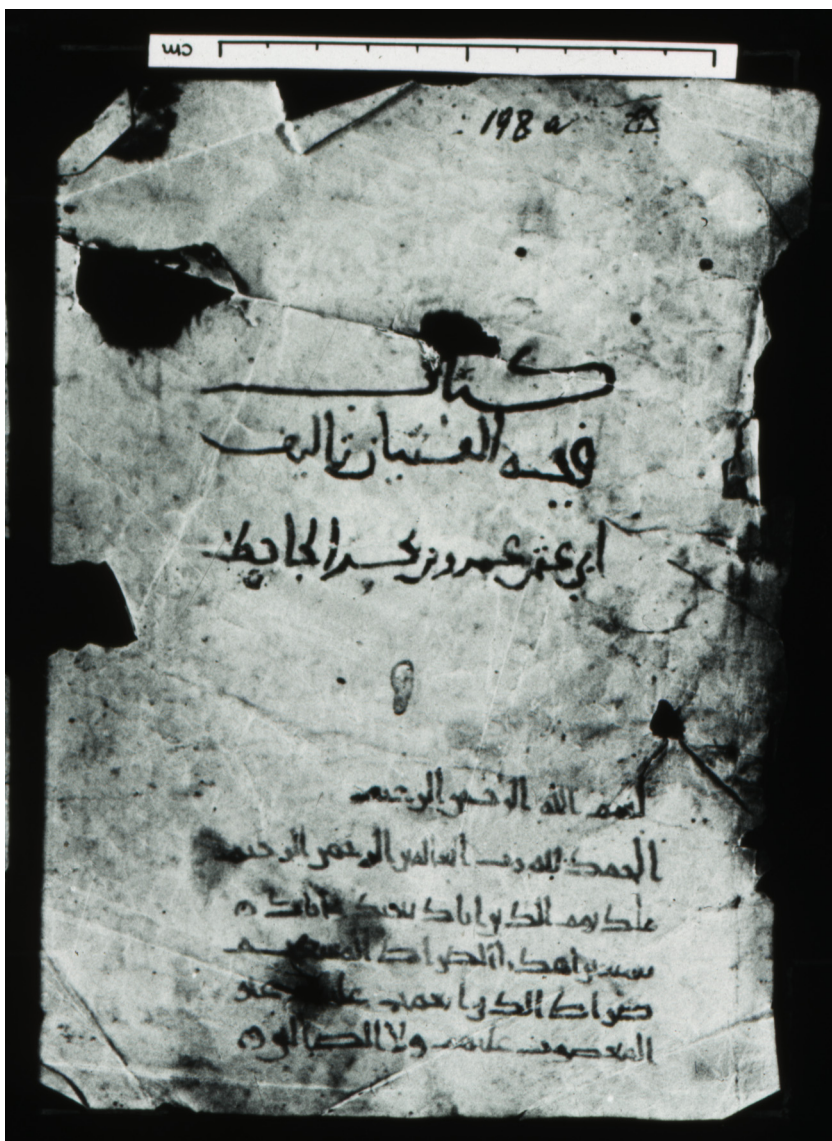 cm
198 a
كتاب
الفتيان تاليف
ابي عثمن عمرو بن بحر الجاحظ
بسم الله الرحمن الرحيم
الحمد لله رب العالمين الرحمن الرحيم
ملك يوم الدين اياك نعبد واياك ن
ستعين اهدنا الصراط المستقيم
صراط الذين انعمت عليهم غير
المغضوب عليهم ولا الضالين